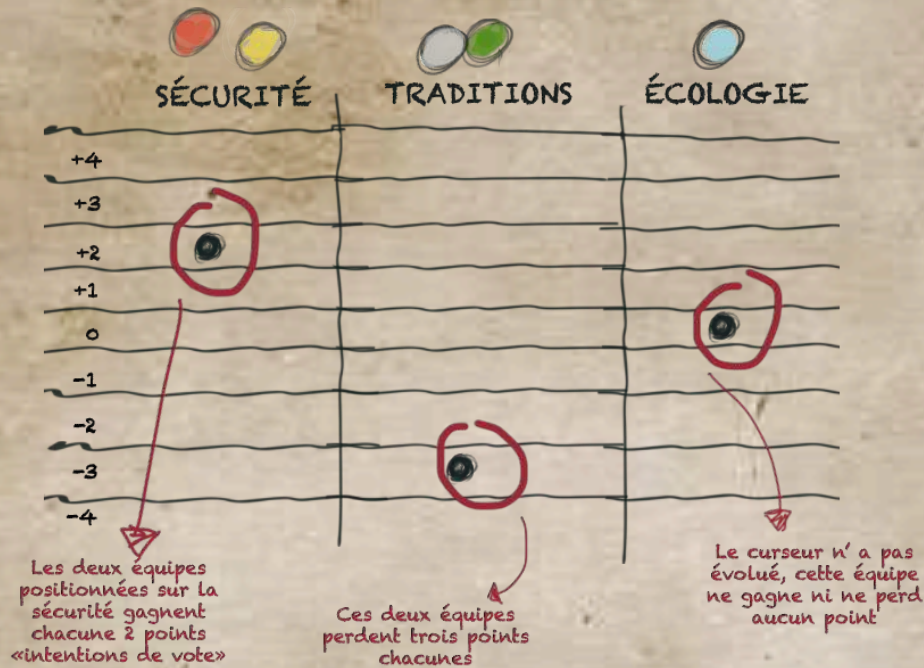 SÉCURITÉ
TRADITIONS
ÉCOLOGIE
+4
+3
+2
+1
0
-1
-2
-3
-4
Les deux équipes
positionnées sur la
sécurité gagnent
chacune 2 points
«intentions de vote»
Ces deux équipes
perdent trois points
chacunes
Le curseur n' a pas
évolué, cette équipe
ne gagne ni ne perd
aucun point